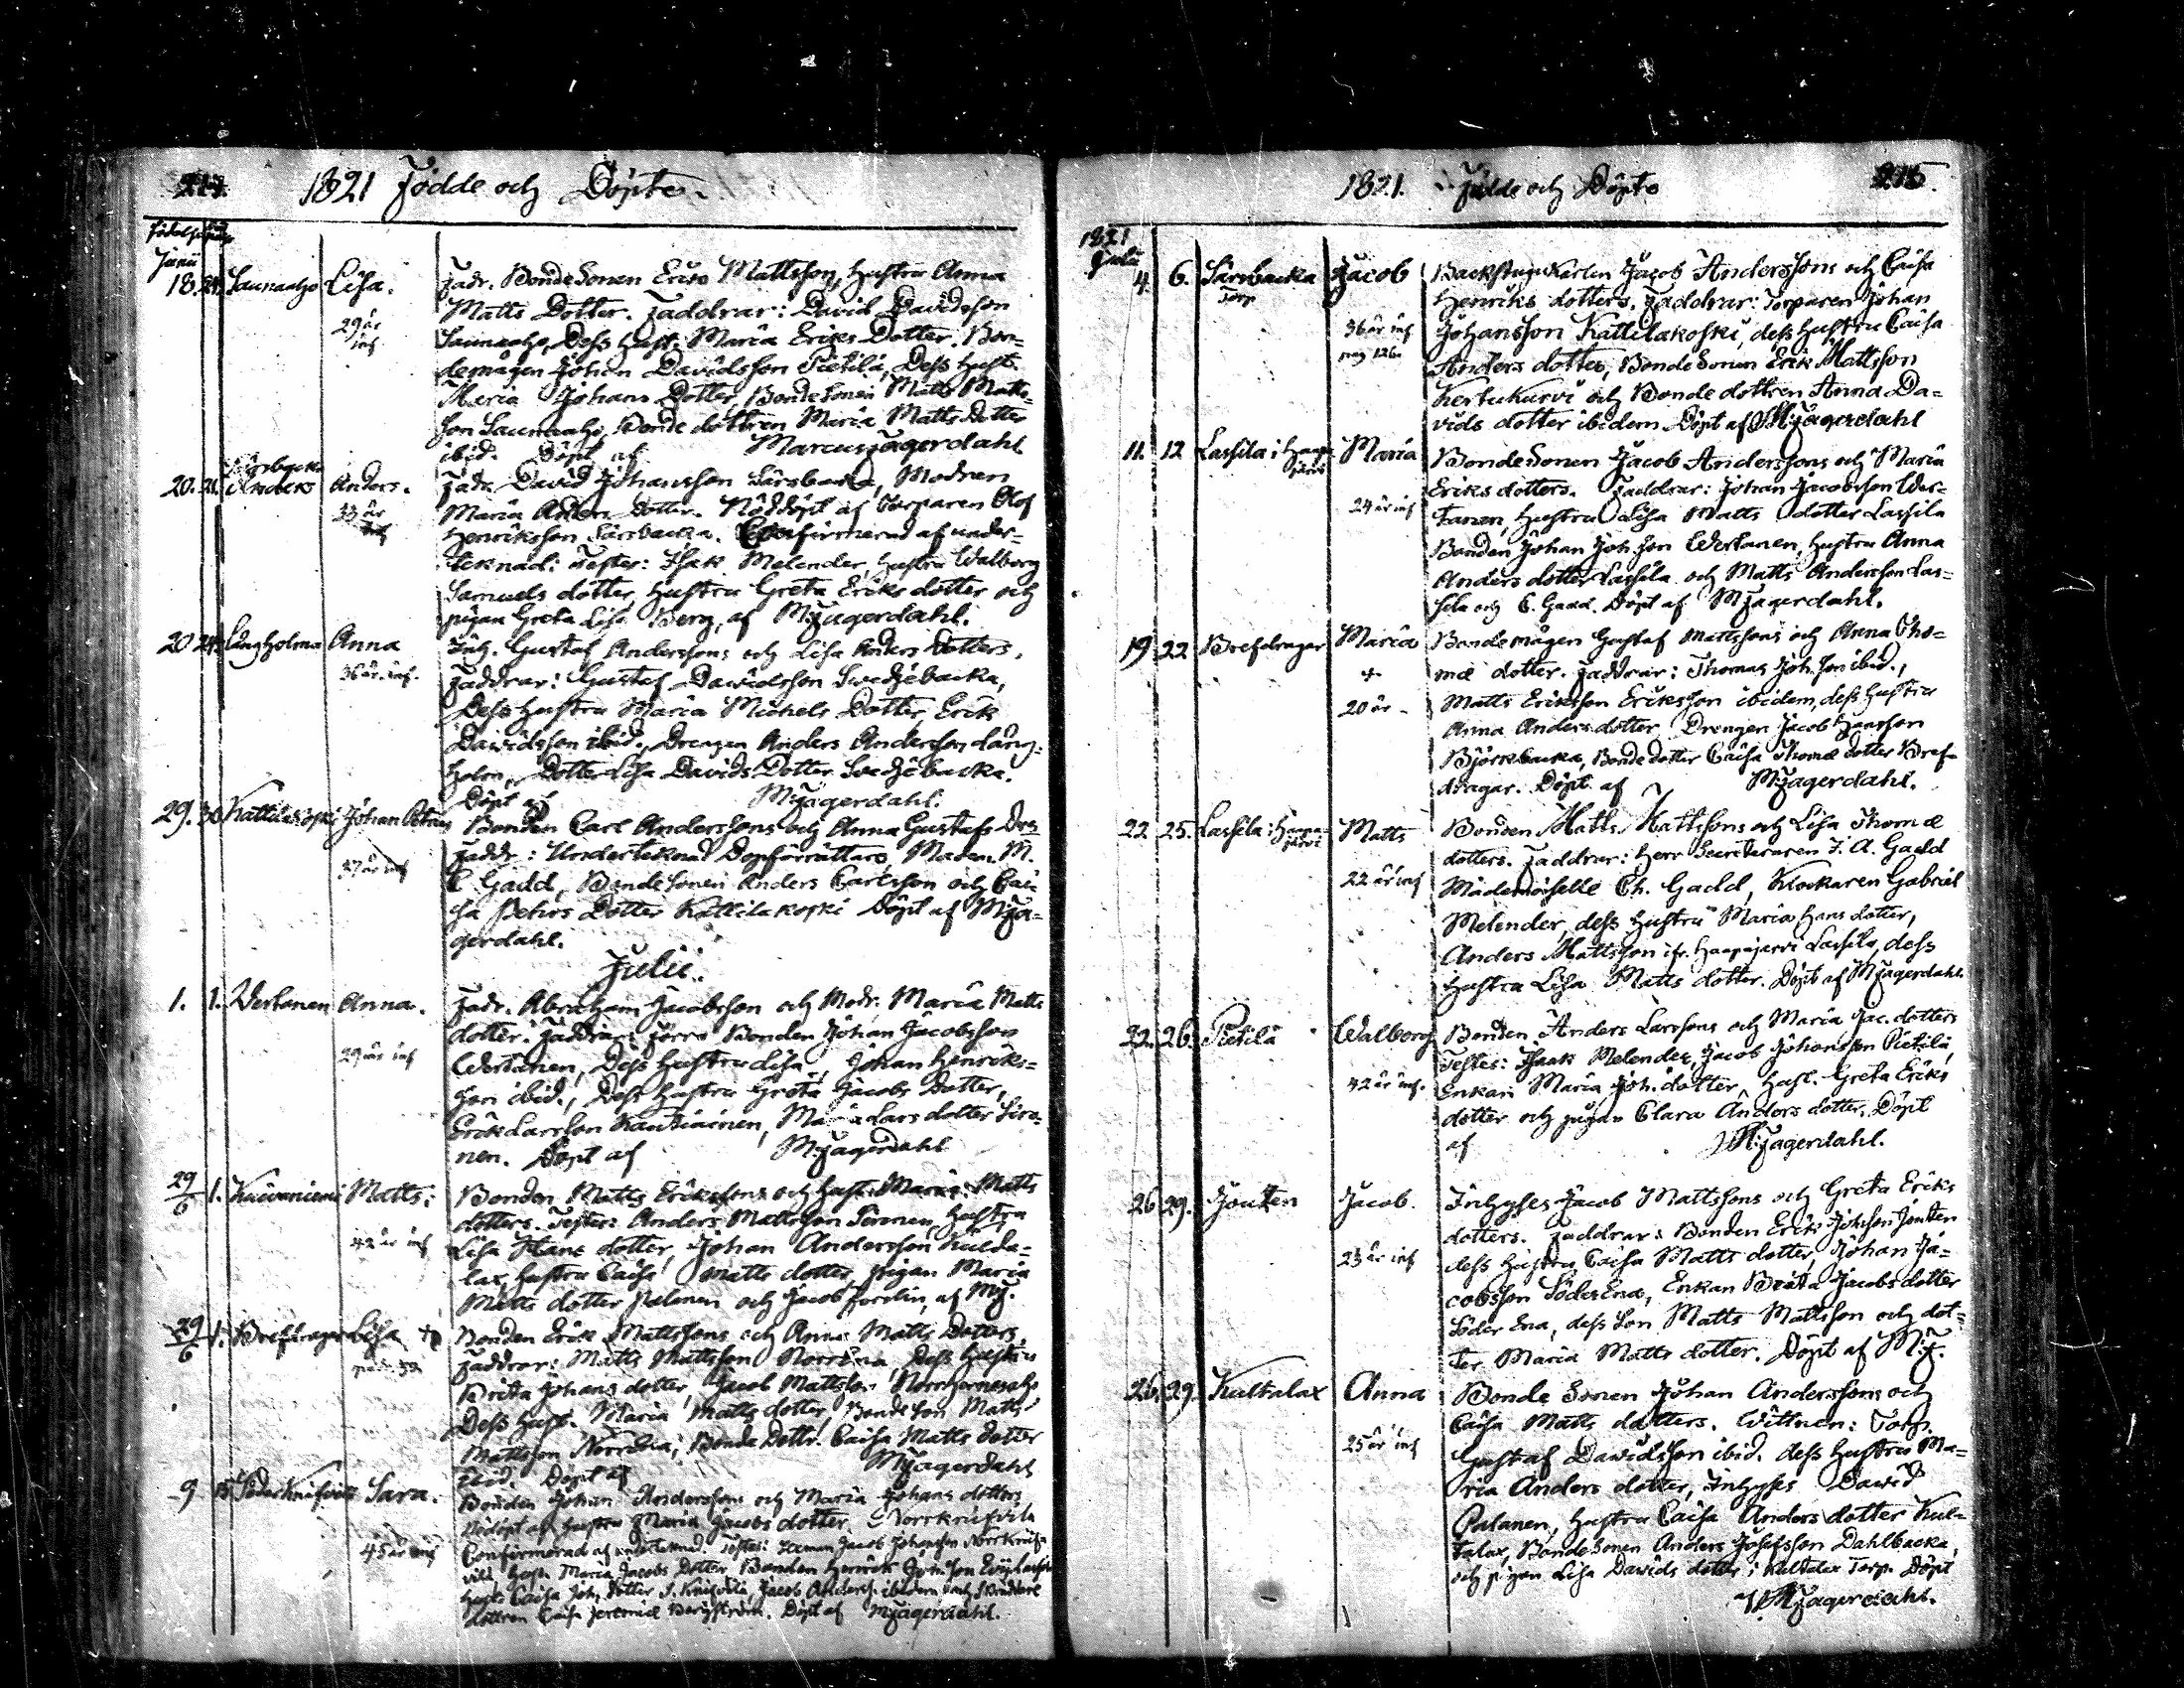 214. 1821 Födde och Döpte.
Junii
18. 24. Saunaaho Lisa. Fadr. Bonde Sonen Eric Mattsson, Hustru Anna
Matts Dotter. Faddrar: David Davidsson
29 år Saunaaho, Dess Hust. Maria Erics Dotter. Bon-
inf demågen Johan Davidsson Pietilä, Dess Hust.
Maria Johans Dotter, Bonde Sonen Matts Matts-
son Saunaaho, Bonde dottren Maria Matts Dotter
ibid. Döpt af Marcus Fagerdahl
20. 21. Särsbacka Anders Anders. Fadr. David Johansson Särsbacka, Modren
33 år Maria Anders Dotter. Nöddöpt af Torparen Olof
inf Henriksson Särsbacka. Confirmerad af under-
teknad: Testes: Isak Melender, Hustru Walborg
Samuels dotter, Hustru Greta Eriks dotter och
pigan Greta Lisa Berg, af M: Fagerdahl.
20 24. Långholma Anna Inh. Gustaf Anderssons och Lisa Anders Dotters,
36 år. inf. Faddrar: Gustaf Davidsson Swedjebacka,
Dess Hustru Maria Michels Dotter, Erik
Davidsson ibid., Drengen Anders Andersson Lång-
holm, Dotter Lisa Davids Dotter Swedjebacka.
Döpt af M: Fagerdahl.
29. 30 Kattilakoski Johan Petrus Bonden Carl Anderssons och Anna Gustafs Drs
37 år inf Faddr: Underteknad Dopförrättare, Madem. M.
C Gadd, Bonde Sonen Anders Carlsson och Cai-
sa Petters Dotter Kattilakoski Döpt af M: Fa-
gerdahl.
Julii.
1. 1. Wertanen Anna. Fadr. Abraham Jacobsson och Modr. Maria Matts
dotter. Faddrar: Förre Bonden Johan Jacobsson
29 år inf Wertanen, Dess Hustru Lisa, Johan Henriks-
son ibid., Dess Hustru Greta Jacobs Dotter,
Erik Larsson Kantiainen, Maria Lars dotter Sire-
nen. Döpt af M: Fagerdahl
29/6 1. Kuivaniemi Matts: Bonden Matts Erikssons och Hustr. Maria Matts
dotters. Testes: Anders Mattsson Tirinen, Hustru
42 år inf Lisa Hans dotter, Johan Andersson Kulda-
lax, Hustru Caisa Matts dotter, pigan Maria
Matts dotter Palanen och Jacob Forslin, af MF.
29/6 1. Brefdragar Lisa Bonden Erik Mattssons och Anna Matts Dotters,
Faddrar: Matts Mattsson Norr Ena, Dess Hustru
Brita Johans dotter, Jacob Mattsson
Dess Hust. Maria Matts dotter, Bonde Son Matts
Mattsson Norr Ena, Bonde Dottr. Caisa Matts dotter
ibid. Döpt af M Fagerdahl
9 15. Söder Knifvilä Sara. Bonden Johan Anderssons och Maria Johans dotters
Nöddöpt af Hustru Maria Jacobs dotter Norrknifvilä
45 år inf Confirmerad af underteknad. Testes: Jacob Johansson Norrknif-
vilä Hust. Maria Jacobs Dotter, Bonden Henrik Johsson
Hust. Caisa Joh. Dotter S. Knifvilä, Jacob Anderss. ibidem och
dottren Caisa Jeremiæ Bergström. Döpt af M Fagerdahl.
1821. Födde och Döpte 215.
1821
Julii
4. 6. Särsbacka Jacob Backstugu Karlen Jacob Anderssons och Caisa
Torp Henriks dotters. Faddrar: Torparen Johan
36 år inf Johansson Kattilakoski, dess Hustru Caisa
pag 126. Anders dotter, Bonde Sonen Erik Mattsson
Kertukurvi och Bonde dottren Anna Da-
vids dotter ibidem. Döpt af M: Fagerdahl
11. 12 Lassila i Haapa- Maria Bonde Sonen Jacob Anderssons och Maria
järvi Eriks dotters. Faddrar: Johan Jacobsson Wer-
24 år inf tanen, Hustru Lisa Matts dotter Lassila
Bonden Johan Joh. son Wertanen, Hustru Anna
Anders dotter Lassila och Matts Andersson Las-
sila och C. Gadd. Döpt af M Fagerdahl.
19 22 Brefdragar Maria Bondemågen Gustaf Mattssons och Anna Tho-
+ mæ dotter. Faddrar: Thomas Joh. Son ibid.,
20 år - Matts Eriksson Eriksson ibidem, dess Hustru
Anna Anders dotter, Drengen Jacob Hansson
Björkbacka, Bonde dotter Caisa Thomæ dotter Bref-
dragar. Döpt af M Fagerdahl.
22 25. Lassila i Haapa- Matts Bonden Matts Mattssons och Lisa Thomæ
järvi dotters. Faddrar: Herr Secreteraren J. A. Gadd
22 år inf Mademoiselle Ch. Gadd, Klockaren Gabriel
Melender, dess Hustru Maria Hans dotter,
Anders Mattsson ifr. Haapajarvi Lassila, dess
Hustru Lisa Matts dotter. Döpt af M Fagerdahl.
22. 26. Pietilä Walborg Bonden Anders Larssons och Maria Jac. dotters
Testes: Isaak Melender, Jacob Johansson Pietilä,
42 år inf. Enkan Maria Joh. dotter, Hust. Greta Eriks
dotter och pigan Clara Anders dotter. Döpt
af M: Fagerdahl.
26 29. Jouten Jacob. Inhyses Jacob Mattssons och Greta Eriks
dotters. Faddrar: Bonden Erik Johsson Jouten
23 år inf dess Hustru Caisa Matts dotter, Johan Ja-
cobsson Söder Ena, Enkan Brita Jacobs dotter
Söder Ena, dess Son Matts Mattsson och dot-
ter Maria Matts dotter. Döpt af M: F.
26. 29. Kultalax Anna Bonde Sonen Johan Anderssons och
Caisa Matts dotters. Wittnen: Torp.
25 år inf Gustaf Davidsson ibid. dess Hustru Ma-
ria Anders dotter, Inhyses David
Palanen, Hustru Caisa Anders dotter Kul-
talax, Bonde Sonen Anders Josefsson Dahlbacka,
och pigan Lisa Davids dotter i Kultalax Torp. Döpt
af M Fagerdahl.